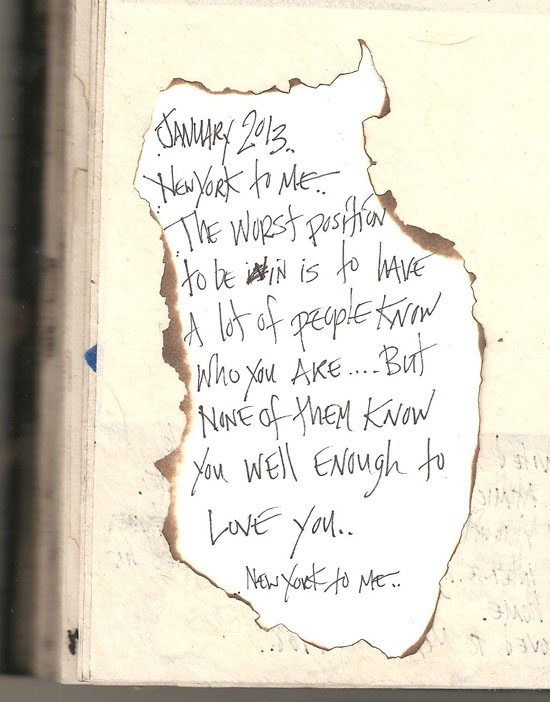 JANUARY 2013..
NEW YORK to ME..
THE WORST POSITION
to be in is to HAVE
A lot of PEOPLE KNOW
WHO YOU ARE.... But
NONE of tHEM KNOW
YOU WELL ENOUGH to
LOVE YOU..
NEW YORK to ME..